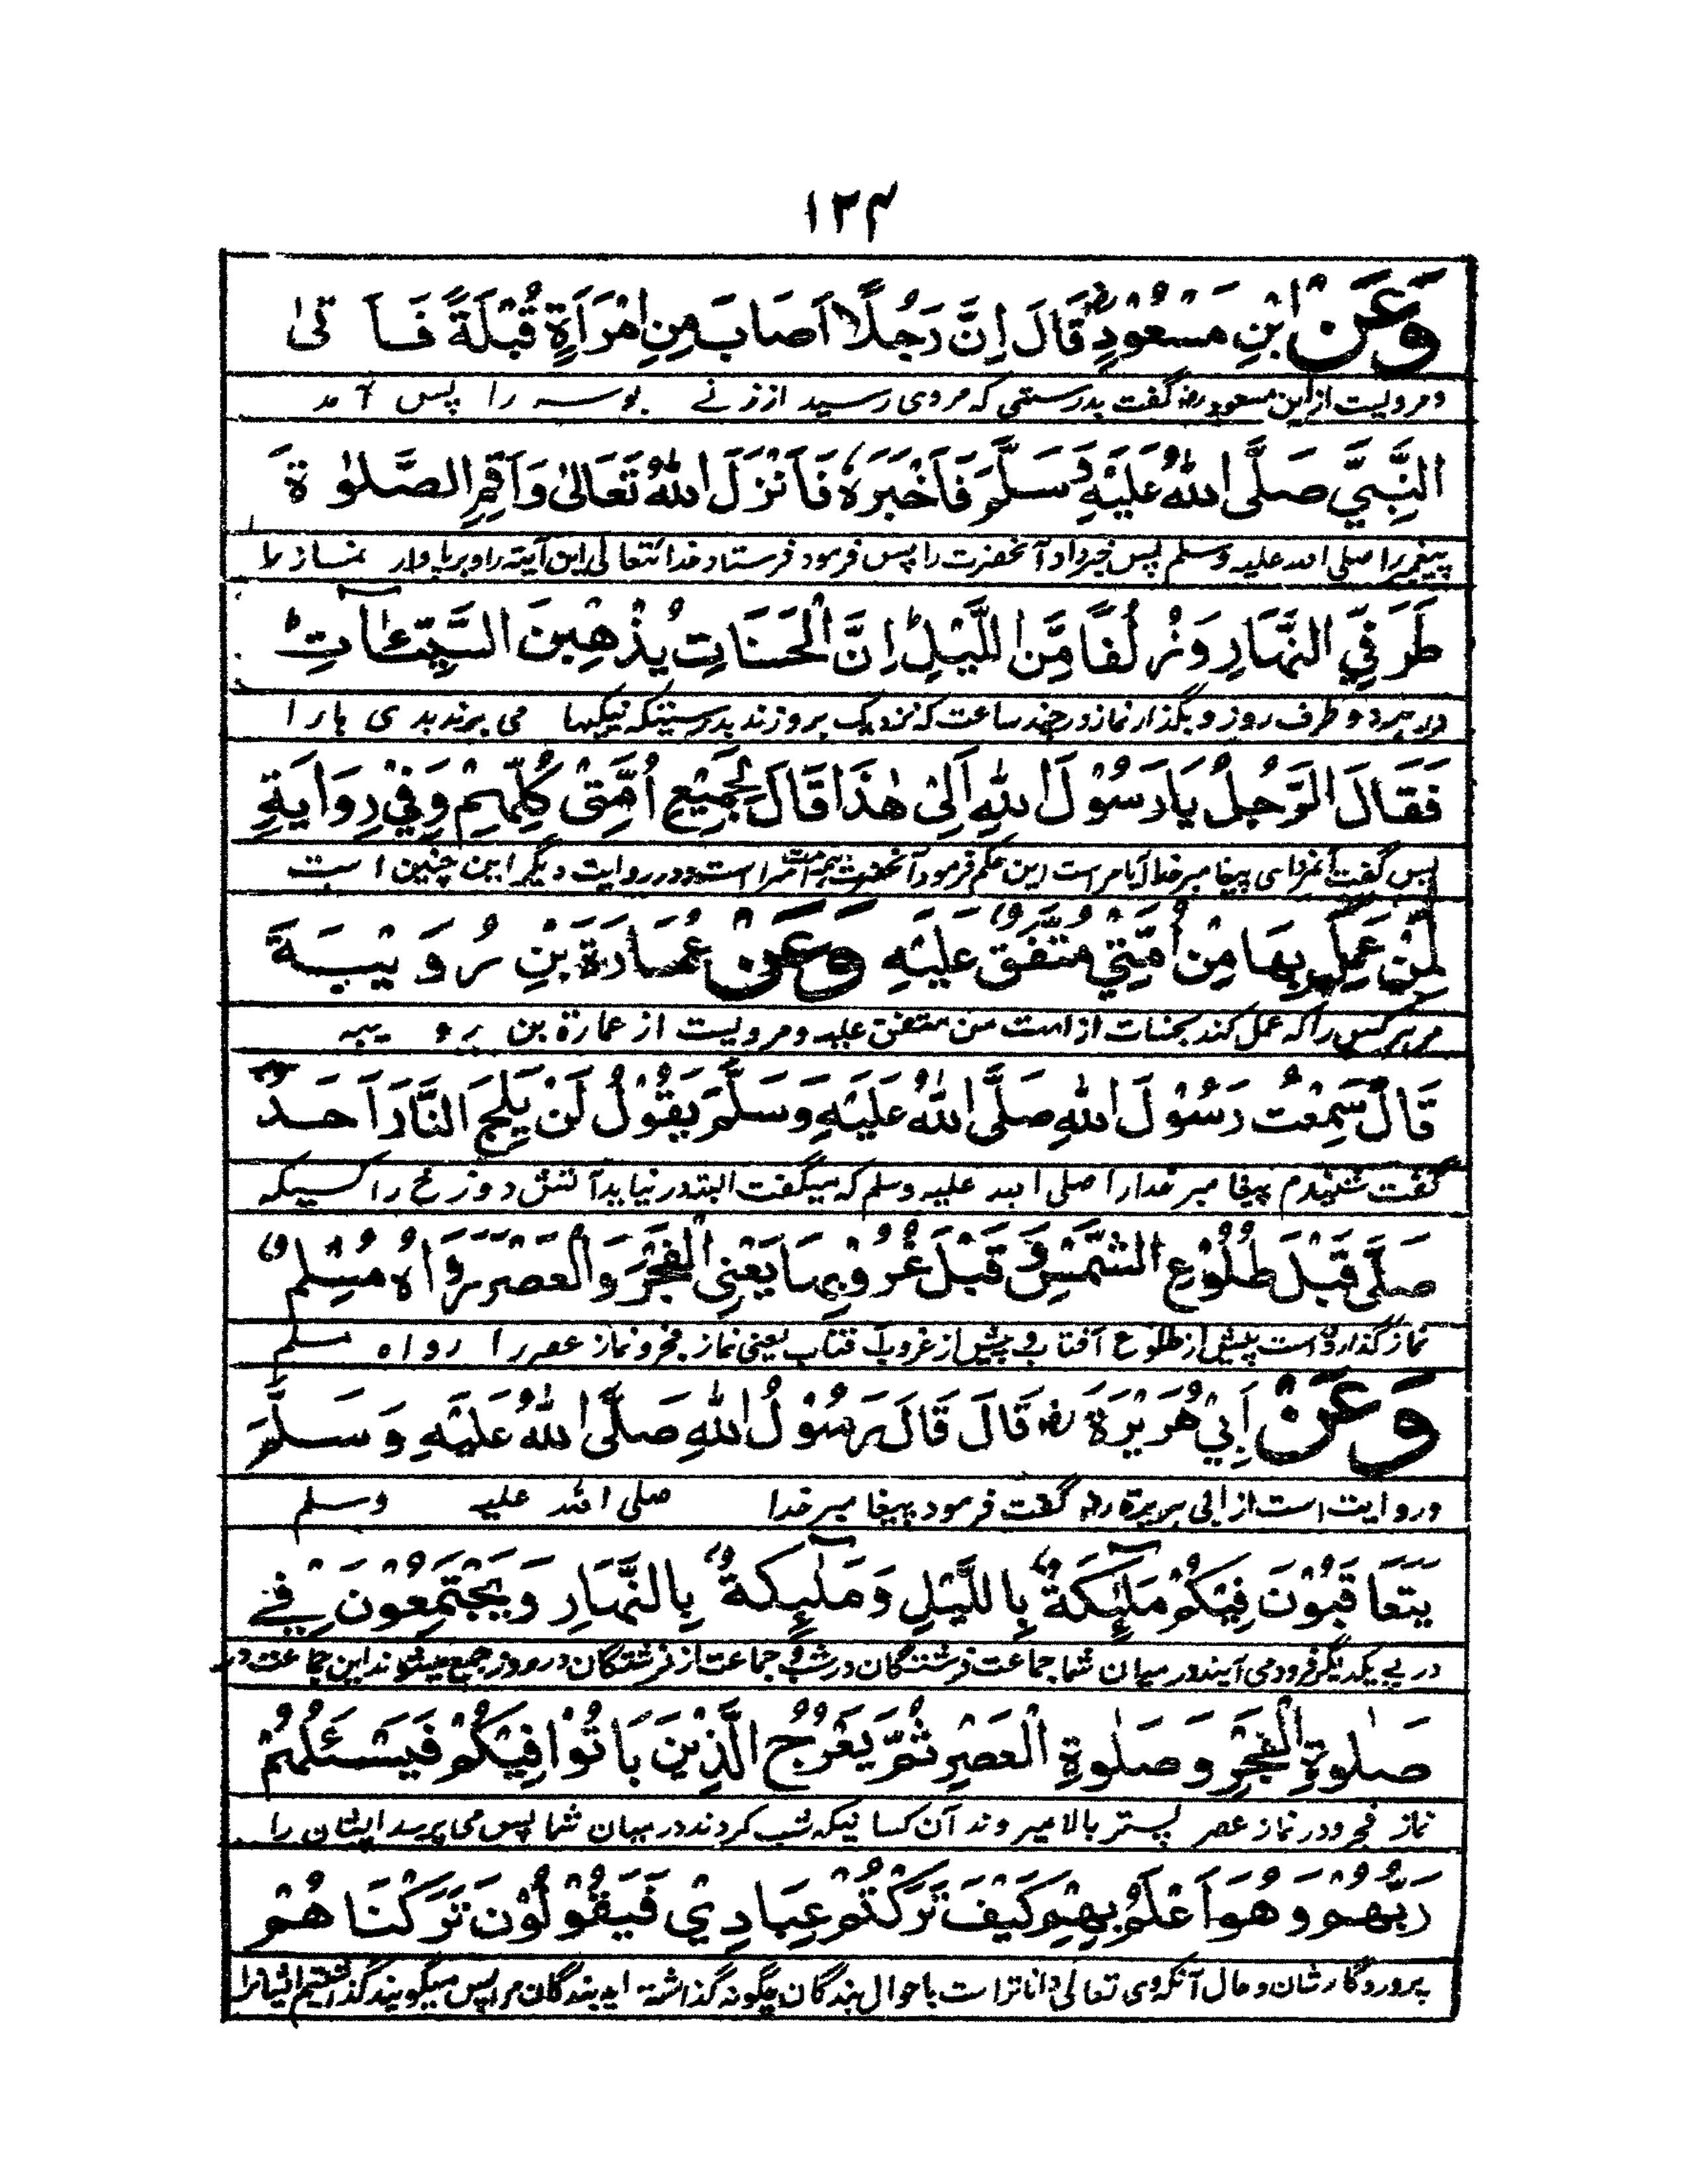 ۱۲۴
وَعَنْ ابْنِ مَسْعُوْدٍ رض قَالَ اِنَّ رَجُلًا اَصَابَ مِنِ امْرَاَةٍ قُبْلَةً فَاَتَىٰ
ومرویست از ابن مسعود رض گفت بدرستی که مردی رسید از زنے بوسه را پس آمد
النَّبِيَّ صَلَّى اللهُ عَلَيْهِ وَسَلَّمَ فَاَخْبَرَهٗ فَاَنْزَلَ اللهُ تَعَالىٰ وَاَقِمِ الصَّلٰوةَ
پیغمبر را صلی الله علیه وسلم پس خبر داد آنحضرت را پس فرمود فرستاد خدا تعالی این آیة را و برپا دار نماز را
طَرَفَيِ النَّهَارِ وَزُلَفًا مِّنَ اللَّيْلِ اِنَّ الْحَسَنَاتِ يُذْهِبْنَ السَّيِّئٰاتِ
در هر دو طرف روز و بگذار نماز در چند ساعت که نزدیک بروزند بدرستیکه نیکیها می برند بدی ها را
فَقَالَ الرَّجُلُ يَا رَسُوْلَ اللهِ اَلِىْ هٰذَا قَالَ لِجَمِيْعِ اُمَّتِىْ كُلِّهِمْ وَفِيْ رِوَايَةٍ
پس گفت آنمرد ای پیغامبر خدا آیا مراست این حکم فرمود آنحضرت همه امت مرا است و در روایت دیگر این چنین است
لِمَنْ عَمِلَ بِهَا مِنْ اُمَّتِيْ مُتَّفَقٌ عَلَيْهِ وَعَنْ عُمَارَةَ بْنِ رُوَيْبَةَ
مر هر کس را که عمل کند بحسنات از امت من متفق علیه ومرویست از عمارة بن رویبه
قَالَ سَمِعْتُ رَسُوْلَ اللهِ صَلَّى اللهُ عَلَيْهِ وَسَلَّمَ يَقُوْلُ لَنْ يَلِجَ النَّارَ اَحَدٌ
گفت شنیدم پیغامبر خدا را صلی الله علیه وسلم که میگفت البته در نیاید آتش دوزخ را کسیکه
صَلَّى قَبْلَ طُلُوْعِ الشَّمْسِ وَ قَبْلَ غُرُوْبِهَا يَعْنِي الْفَجْرَ وَالْعَصْرَ رَوَاهُ مُسْلِمٌ
نماز گذارده است پیش از طلوع آفتاب و پیش از غروب آفتاب یعنی نماز فجر و نماز عصر را رواه مسلم
وَعَنْ اَبِيْ هُرَيْرَةَ رض قَالَ قَالَ رَسُوْلُ اللهِ صَلَّى اللهُ عَلَيْهِ وَسَلَّمَ
وروایت است از ابی هریرة رض گفت فرمود پیغامبر خدا صلی الله علیه وسلم
يَتَعَاقَبُوْنَ فِيْكُمْ مَلٰٓئِكَةٌ بِاللَّيْلِ وَمَلٰٓئِكَةٌ بِالنَّهَارِ وَيَجْتَمِعُوْنَ فِے
در پے یکدیگر فرود می آیند در میان شما جماعت فرشتگان در شب و جماعت از فرشتگان در روز و جمع میشوند این جماعت در
صَلٰوةِ الْفَجْرِ وَصَلٰوةِ الْعَصْرِ ثُمَّ يَعْرُجُ الَّذِيْنَ بَاتُوْا فِيْكُمْ فَيَسْئَلُهُمْ
نماز فجر و در نماز عصر پستر بالا میروند آن کسانیکه شب کردند در میان شما پس می پرسد ایشان را
رَبُّهُمْ وَهُوَ اَعْلَمُ بِهِمْ كَيْفَ تَرَكْتُمْ عِبَادِيْ فَيَقُوْلُوْنَ تَرَكْنَاهُمْ
پروردگار شان و حال آنکه وی تعالی دانا تر است باحوال بندگان چگونه گذاشته اید بندگان مرا پس میگویند گذاشتیم ایشانرا